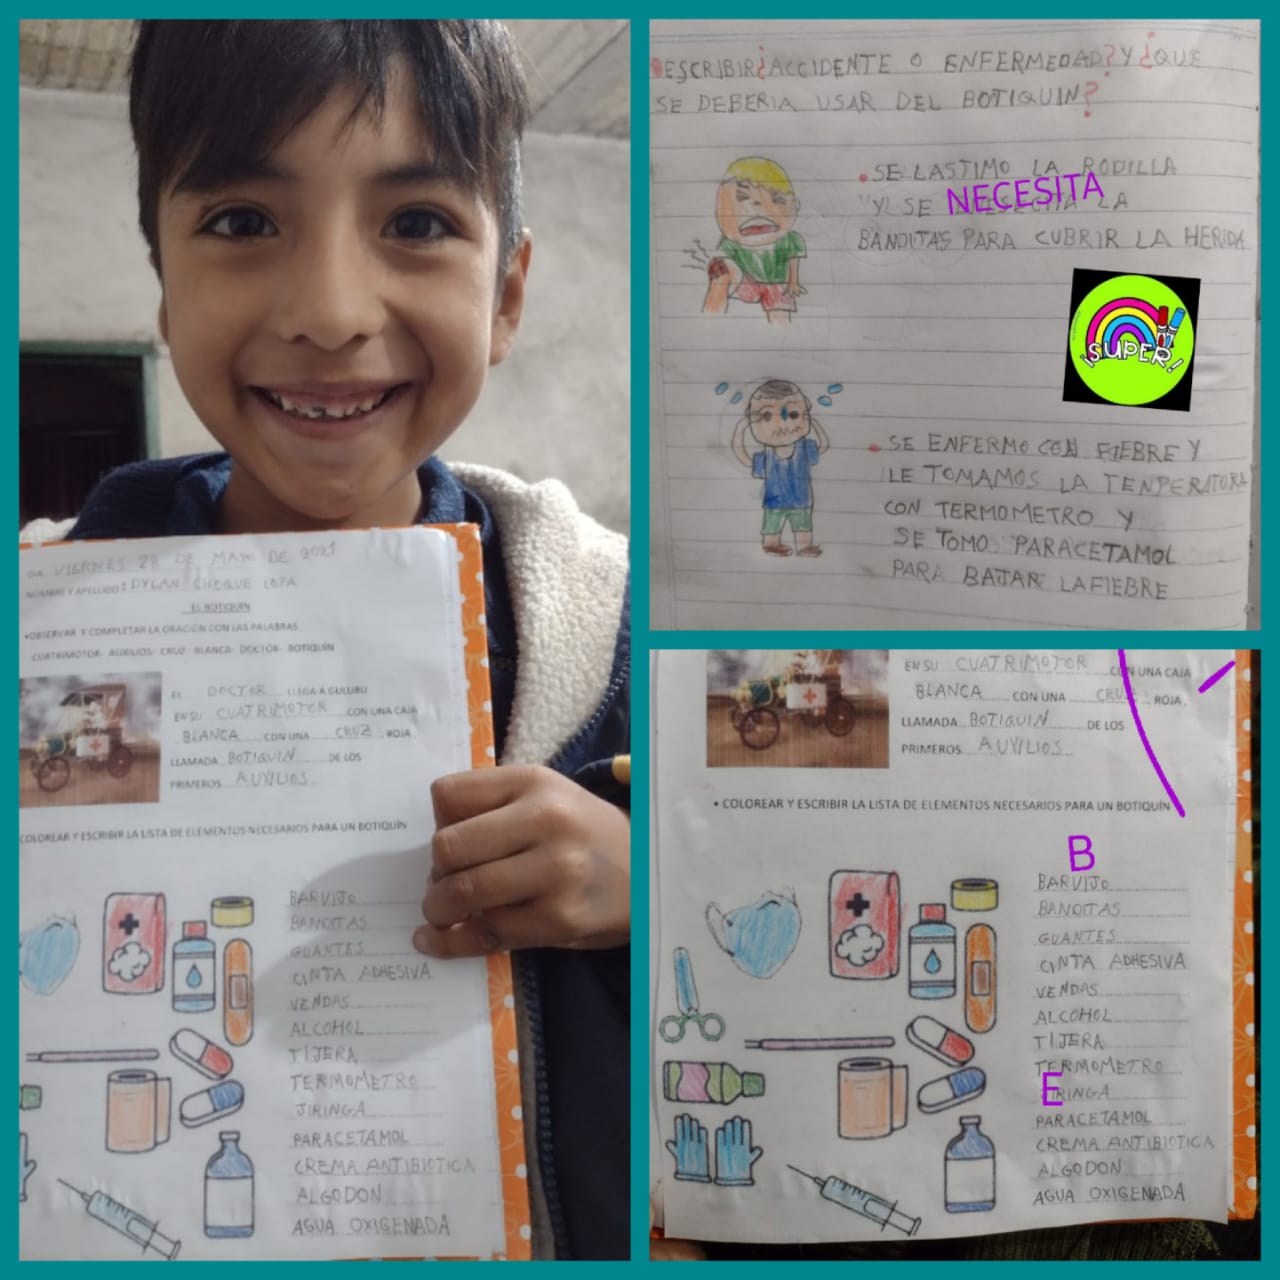 DIA VIERNES 28 DE MAYO DE 2021
NOMBRE Y APELLIDO: DYLAN CHOQUE COPA
EL BOTIQUIN
•OBSERVAR Y COMPLETAR LA ORACIÓN CON LAS PALABRAS.
CUATRIMOTOR- AUXILIOS- CRUZ- BLANCA- DOCTOR- BOTIQUÍN
EL DOCTOR LLEGA A GULUBU
EN SU CUATRIMOTOR CON UNA CAJA
BLANCA CON UNA CRUZ ROJA,
LLAMADA BOTIQUIN DE LOS
PRIMEROS AUXILIOS
COLOREAR Y ESCRIBIR LA LISTA DE ELEMENTOS NECESARIOS PARA UN BOTIQUÍN
BARVIJO
BANDITAS
GUANTES
CINTA ADHESIVA
VENDAS
ALCOHOL
TIJERA
TERMOMETRO
JIRINGA
PARACETAMOL
CREMA ANTIBIOTICA
ALGODON
AGUA OXIGENADA
DESCRIBIR ¿ACCIDENTE O ENFERMEDAD? Y ¿QUE
SE DEBERIA USAR DEL BOTIQUIN?
•SE LASTIMO LA RODILLA
Y SE NECESITA LA
BANDITAS PARA CUBRIR LA HERIDA
¡SUPER!
•SE ENFERMO CON FIEBRE Y
LE TOMAMOS LA TENPERATURA
CON TERMOMETRO Y
SE TOMO PARACETAMOL
PARA BAJAR LA FIEBRE
EN SU CUATRIMOTOR CON UNA CAJA
BLANCA CON UNA CRUZ ROJA,
LLAMADA BOTIQUIN DE LOS
PRIMEROS AUXILIOS
• COLOREAR Y ESCRIBIR LA LISTA DE ELEMENTOS NECESARIOS PARA UN BOTIQUÍN
B
BARVIJO
BANDITAS
GUANTES
CINTA ADHESIVA
VENDAS
ALCOHOL
TIJERA
TERMOMETRO
E
JIRINGA
PARACETAMOL
CREMA ANTIBIOTICA
ALGODON
AGUA OXIGENADA